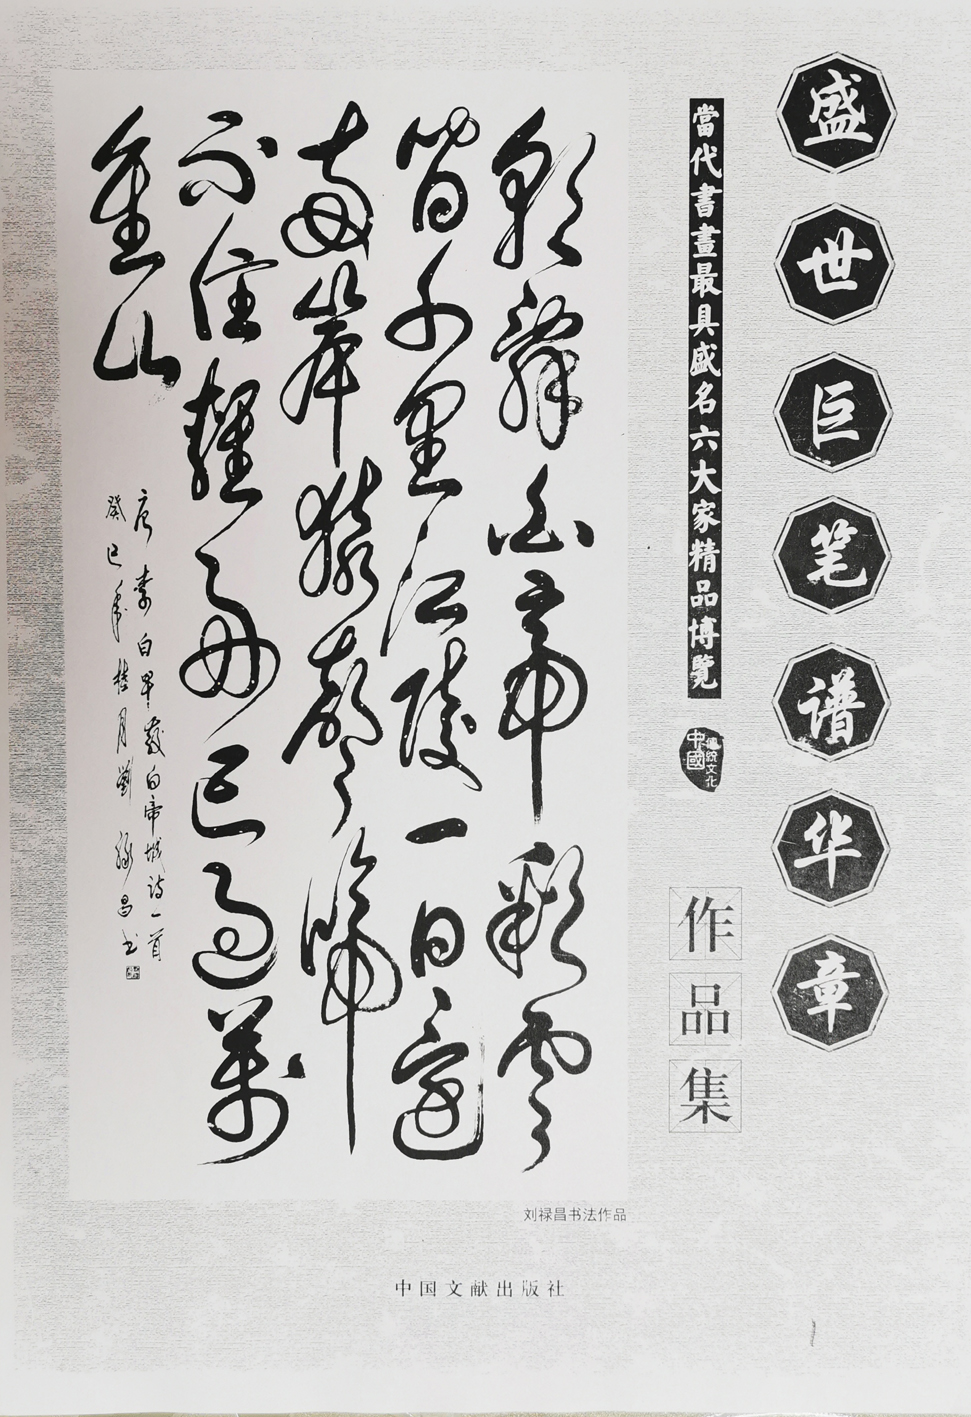 盛世巨笔谱华章
當代書畫最具盛名六大家精品博覽
中國
傳統文化
作品集
朝辞白帝彩云
间千里江陵一日还
两岸猿声啼
不住轻舟已过万
重山
唐李白早發白帝城诗一首
癸巳年桂月劉禄昌书
刘禄昌书法作品
中国文献出版社